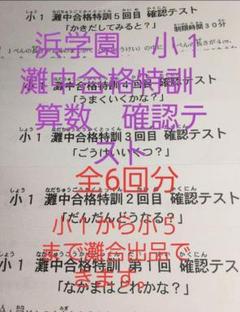 小1 灘中合格特訓5回目 確認テスト
制限時間30分
「かきだしてみると？」
浜学園 小1
灘中合格特訓
算数 確認テ
スト
全6回分
小1から小5
まで灘合出品で
きます。
「うまくいくかな？」
小1 灘中合格特訓3回目 確認テスト
「ごうけいいくつ？」
小1 灘中合格特訓2回目 確認テスト
「だんだんどうなる？」
小1 灘中合格特訓 第1回 確認テスト
「なかまはどれかな？」